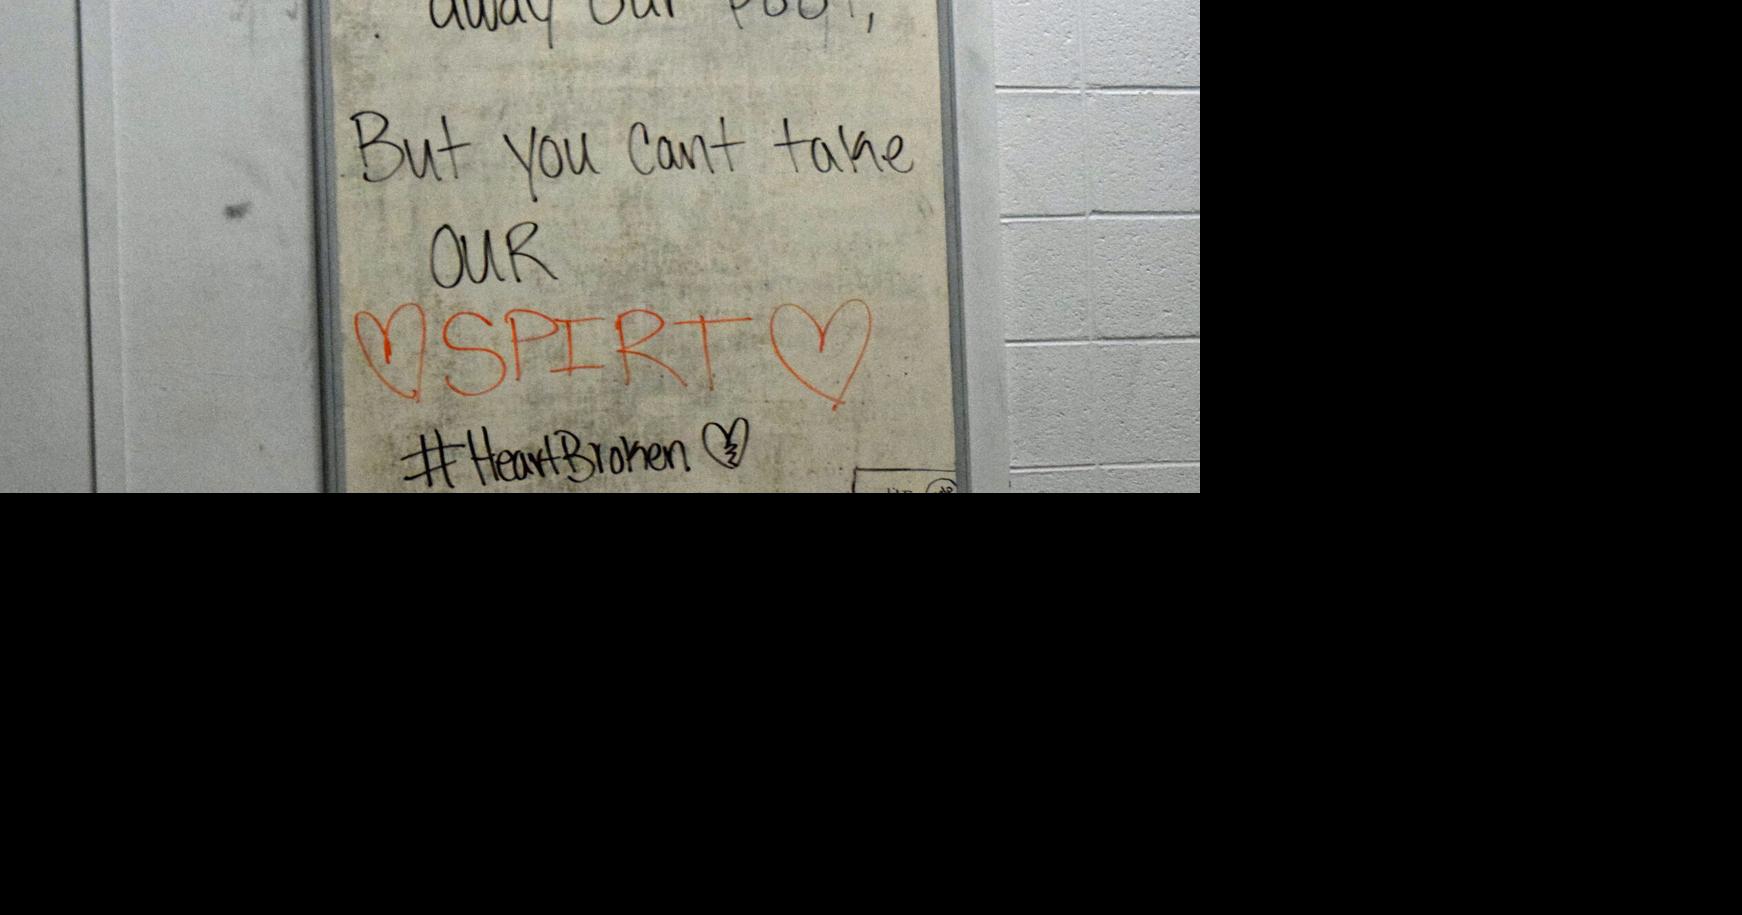 away our pool,
But you cant take
OUR
SPIRT
#HeartBroken